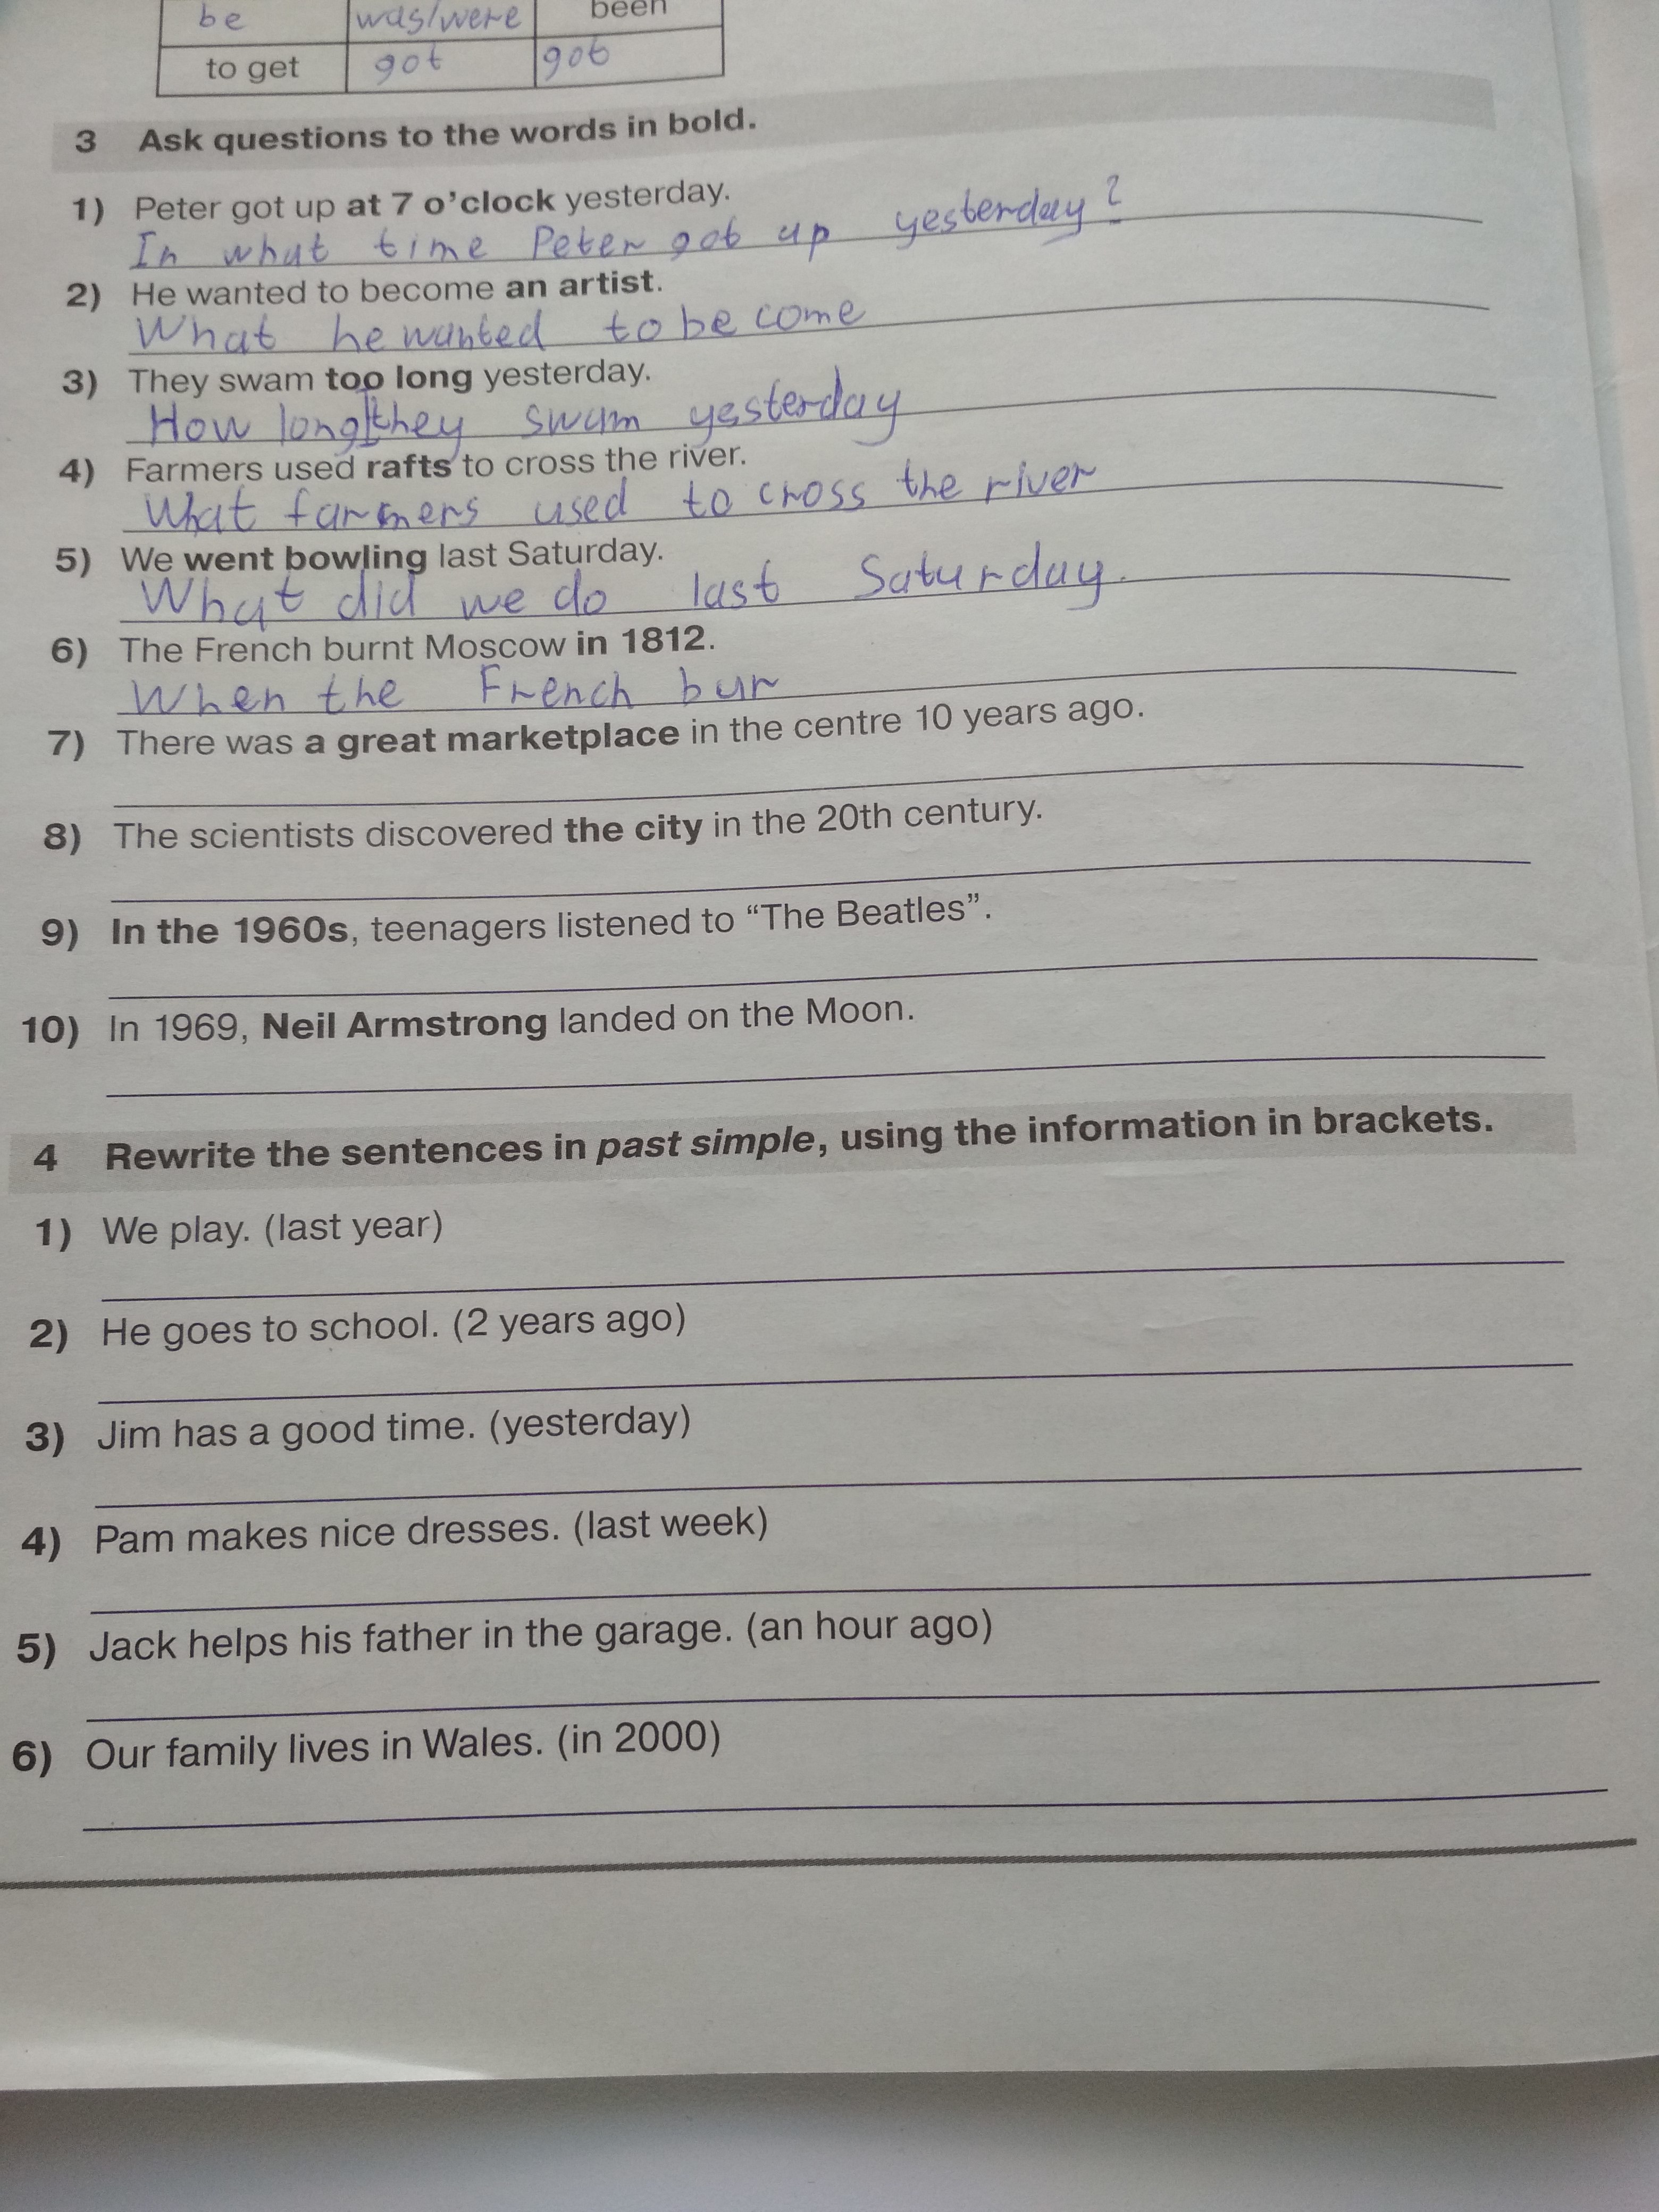 be was/were been
to get got got
3 Ask questions to the words in bold.
1) Peter got up at 7 o'clock yesterday.
In what time Peter got up yesterday?
2) He wanted to become an artist.
What he wanted to become
3) They swam too long yesterday.
How long they swam yesterday
4) Farmers used rafts to cross the river.
What farmers used to cross the river
5) We went bowling last Saturday.
What did we do last Saturday.
6) The French burnt Moscow in 1812.
When the French bur
7) There was a great marketplace in the centre 10 years ago.
8) The scientists discovered the city in the 20th century.
9) In the 1960s, teenagers listened to “The Beatles”.
10) In 1969, Neil Armstrong landed on the Moon.
4 Rewrite the sentences in past simple, using the information in brackets.
1) We play. (last year)
2) He goes to school. (2 years ago)
3) Jim has a good time. (yesterday)
4) Pam makes nice dresses. (last week)
5) Jack helps his father in the garage. (an hour ago)
6) Our family lives in Wales. (in 2000)